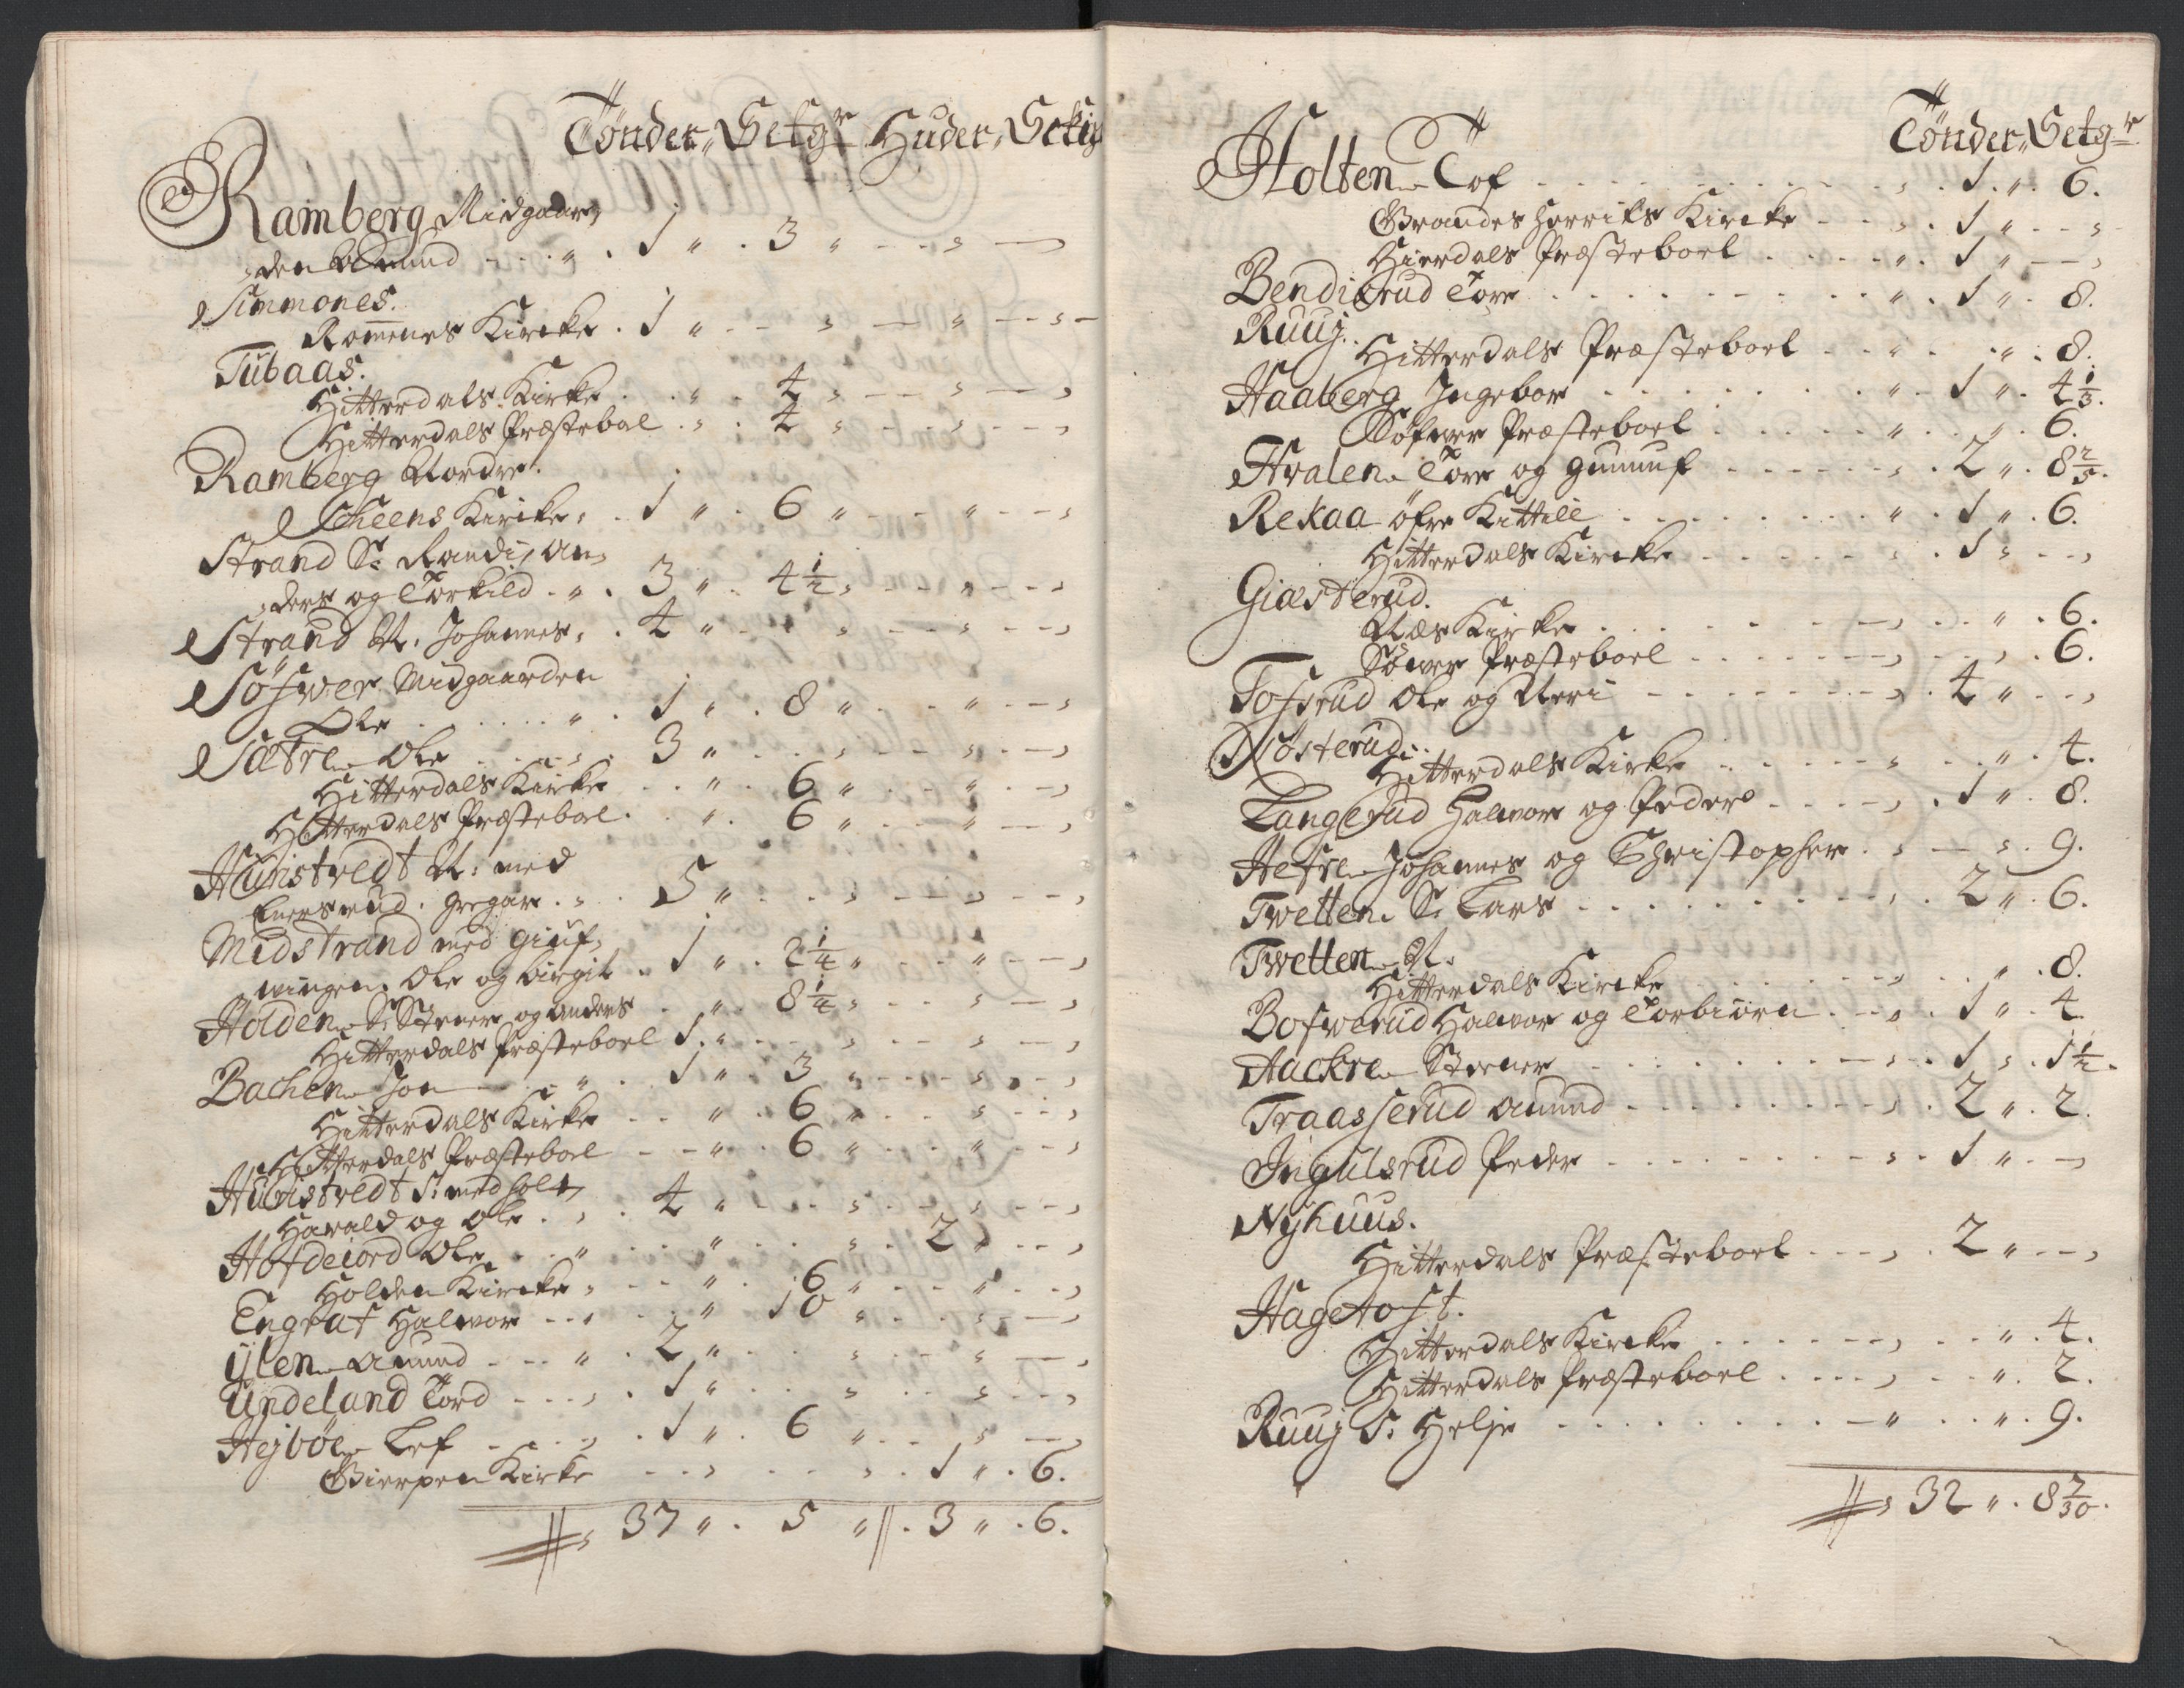 Tönder, Setgr Huder, Schi
Ramberg Midgaar,
den Amund . . . " . 1 " . 3 " - - - , —
Simmones.
Romenes Kircke . 1 " - - , — " - - , -
Tubaas.
Hitterdals Kirke . . " . 4 , - - , - - ,
Hitterdals Præstebol . , . 4 , - - , - - ,
Ramberg Nordre.
Scheens Kirike , . 1 " . 6 " - - " - - ,
Strand S: Randi, An,
ders og Torkild . " . 3 " . 4 1/2 , - - " - - ,
Strand N. Johannes , . 4 " - - , - - , - - ,
Söfwer Midgaarden
Ole . . . . . " . 1 " . 8 " . . " - - ,
Sætre Ole . . . , . 3 " . . , - - , . - ,
Hitterdals Kirke . . " . 6 " . - " . - ,
Hitterdals Præstebol . . " . 6 " . . " - - ,
Hünstvedt N: med
Enersrud. Gregar . , . 5 " . . , - - , - - ,
Midstrand med Giuf,
wingen. Ole og Birgit . 1 " . 2 1/4 " . . " - - ,
Holden S: Stener og Anders . . " . 8 1/4 , - - , - - ,
Hitterdals Præsteboel 1 . " - - , - - , - - ,
Bachen Jon . . " . 1 " . 3 " - - - , . - ,
Hitterdals Kirke . . " . 6 " . . . , - - ,
Hitterdals Præstebol - - " . 6 " . . " - - ,
Hünstvedt S: med Holt,
Harald og Ole . , . 4 " - - , - - , - - ,
Hofdeiord Ole . . " . . " . . , . 2 " . - - ,
Holden Kircke , - - " . 6 " - - " . . - ,
Engraf Halvor . . , . . " 10 " . . , - - ,
Ylen Amund - - - " . 2 " . . , . - , - - ,
Undeland Tord - - - , . 1 " . . , . . , - - ,
Hejböe Lef - . - . , . 1 " . 6 " . - , — ,
Gierpen Kirke - - , . . . , . 1 " . 6.
, 37 " . 5 " // . 3 " . 6.
Tönder, Setgr
Holten Tof . . . . . . , . 1 . " . 6.
Brandes Herrits Kircke - - , . 1 " - - ,
Hierdals Præsteboel . . . . " . 1 " - - ,
Bendixrud Tore . . . . . . . " . 1 " . 8.
Ruuj.
Hitterdals Præsteboel . - - " . . " . 8.
Haaberg Ingebor . . . . . . " . 1 " . 4 1/3.
Söfwer Præsteboel . . . . . " . . " . 6.
Hvalen Tore og Gunnuf - - - - - , . 2 " . 8 2/5.
Rekaa öfre Kittill . . . . . . . " . 1 " . 6.
Hitterdals Kircke - . - - - , . 1 , - - ,
Giæsterud.
Næs Kirke . . . . . . - - , . . " . 6.
Söwer Præsteboel . . . . . - - , - - , . 6.
Tofsrud Ole og Neri - - - - - - , . 4 " - - ,
Nösterud.
Hitterdals Kirke . . . . - " - . " . 4.
Langerud Halvor og Peder - - - - , . 1 " . 8.
Hefre Johannes og Christopher . , - , . 9.
Twetten S: Lars - - . . . . . . . , . 2 " . 6.
Twetten N.
Hitterdals Kircke . . . . . . , . . " . 8.
Bofwerud Halvor og Torbiörn . - - , . 1 " . 4.
Aackre Stener . . . . . . . - - , . 1 , . 1 1/2.
Traasserud Amund . . . . . . . - , . 2 " . 2.
Ingulsrud Peder . . . . . . . . , . 1 " . - ,
Nyhuus.
Hitterdals Præsteboel - - - , . 2 " - - ,
Hagetoft.
Hitterdals Kircke . . . . . - - , . . " . 4.
Hitterdals Præsteboel . . . - , - - " . 2.
Ruuj S: Helje . . . . . . . . - " . . " . 9.
, 32 " . 8 7/30.